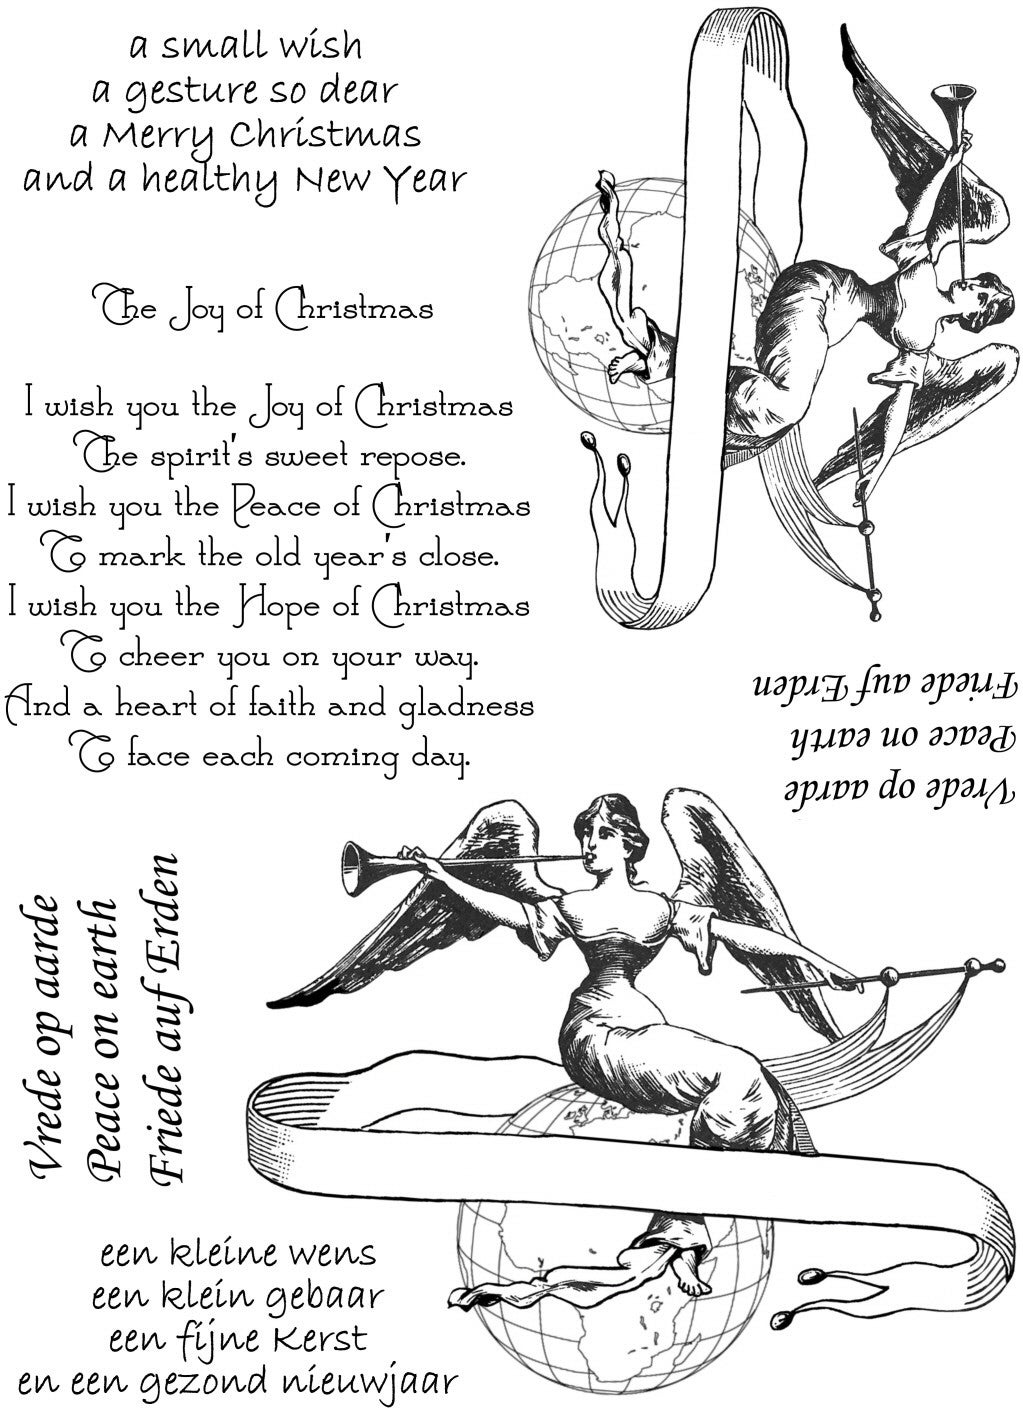 a small wish
a gesture so dear
a Merry Christmas
and a healthy New Year
The Joy of Christmas
I wish you the Joy of Christmas
The spirit's sweet repose.
I wish you the Peace of Christmas
To mark the old year's close.
I wish you the Hope of Christmas
To cheer you on your way.
And a heart of faith and gladness
To face each coming day.
Vrede op aarde
Peace on earth
Friede auf Erden
Vrede op aarde
Peace on earth
Friede auf Erden
een kleine wens
een klein gebaar
een fijne Kerst
en een gezond nieuwjaar